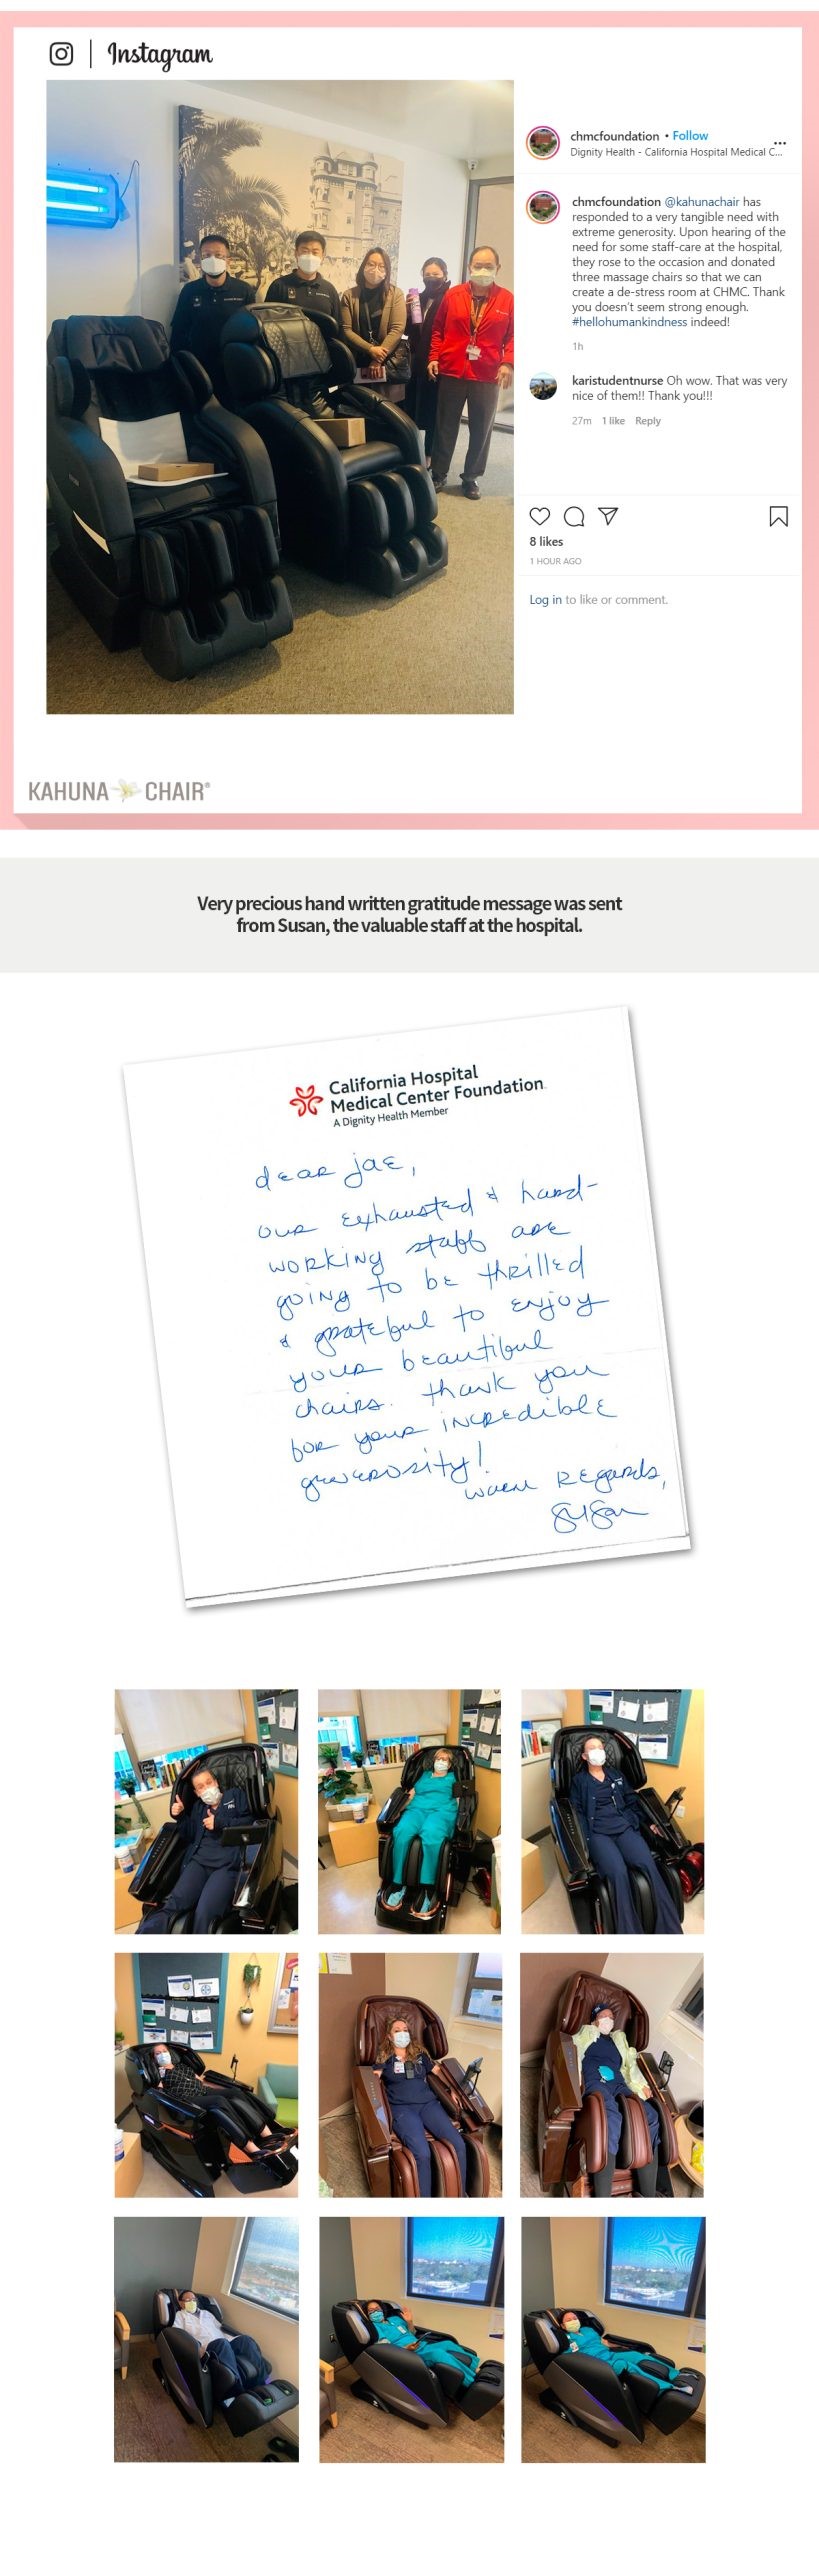 Instagram
chmcfoundation • Follow
Dignity Health - California Hospital Medical C...
chmcfoundation @kahunachair has
responded to a very tangible need with
extreme generosity. Upon hearing of the
need for some staff-care at the hospital,
they rose to the occasion and donated
three massage chairs so that we can
create a de-stress room at CHMC. Thank
you doesn't seem strong enough.
#hellohumankindness indeed!
1h
karistudentnurse Oh wow. That was very
nice of them!! Thank you!!!
27m 1 like Reply
8 likes
1 HOUR AGO
Log in to like or comment.
KAHUNA CHAIR®
Very precious hand written gratitude message was sent
from Susan, the valuable staff at the hospital.
California Hospital
Medical Center Foundation
A Dignity Health Member
dear jae,
our exhausted & hard-
working staff are
going to be thrilled
& grateful to enjoy
your beautiful
chairs. thank you
for your incredible
generosity!
warm regards,
Susan